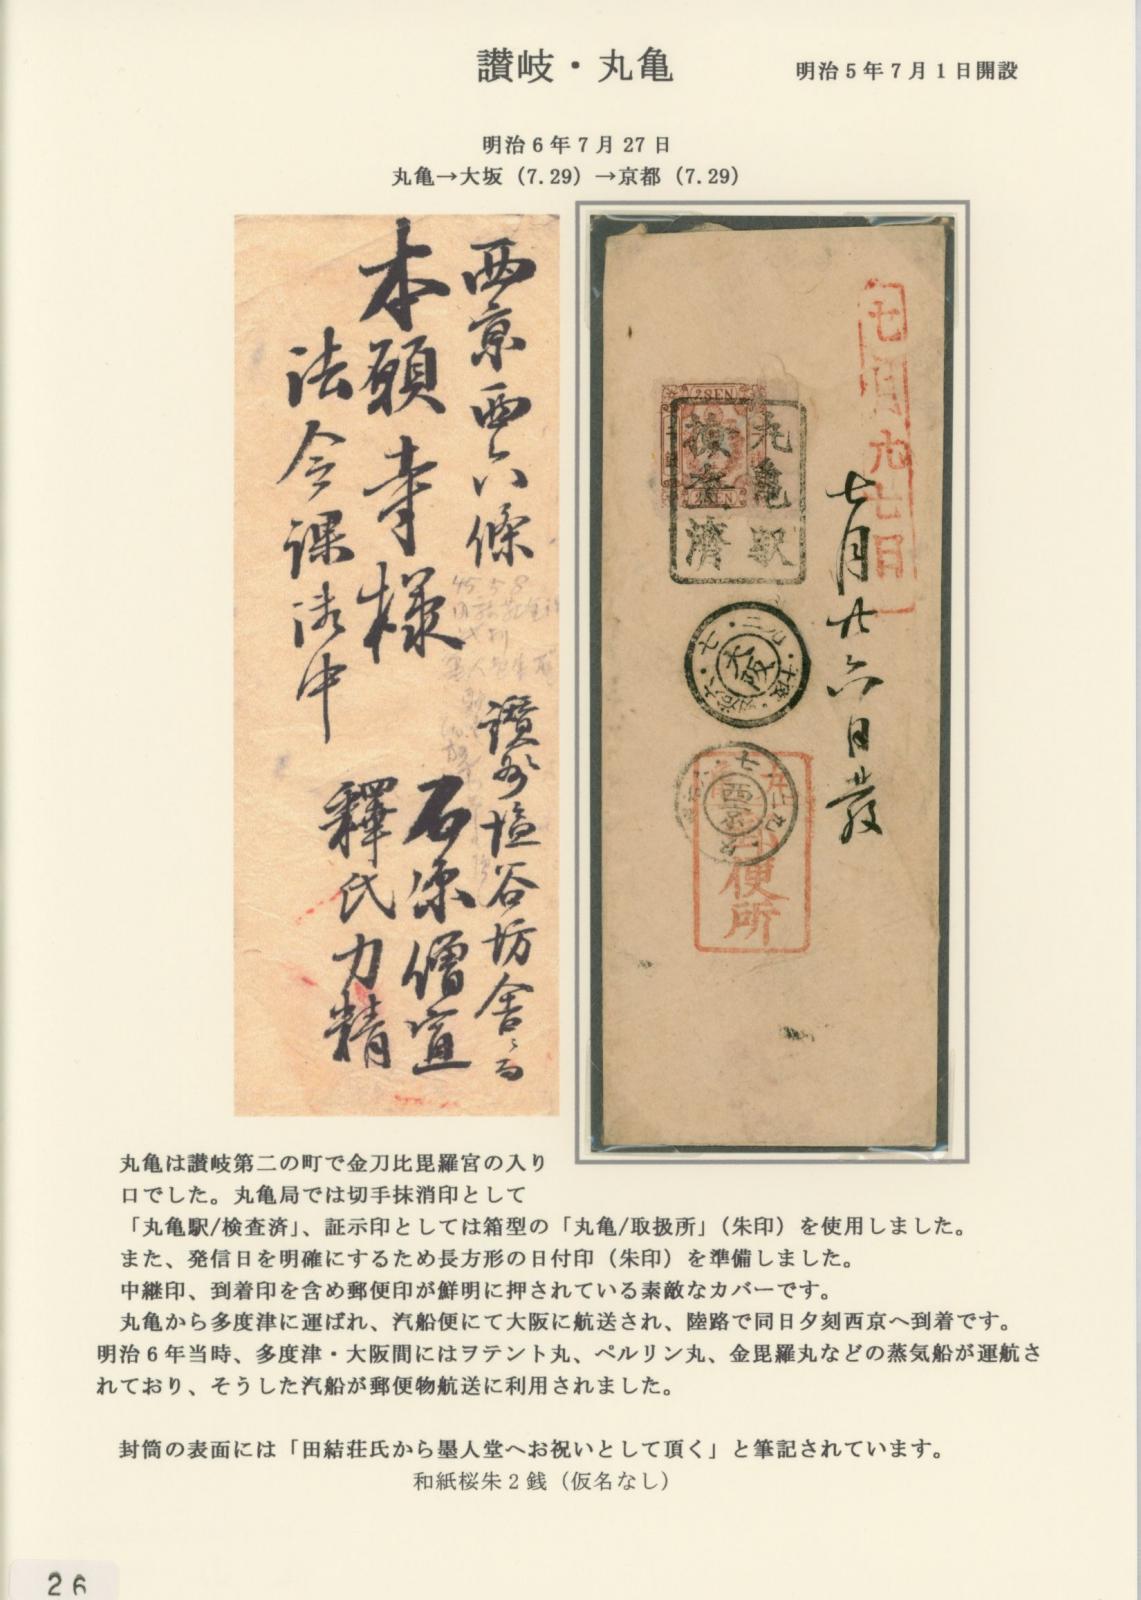 讃岐・丸亀
明治5年7月1日開設
明治6年7月27日
丸亀→大坂（7.29）→京都（7.29）
西京西六條
本願寺様
法令課御中
45.5.8
讃州塩谷坊舎ゟ
石原僧宣
釋氏力精
七月廿七日
2SEN
2SEN
丸亀駅
検査済
七月廿六日発
大阪
西京
郵便所
丸亀は讃岐第二の町で金刀比毘羅宮の入り
口でした。丸亀局では切手抹消印として
「丸亀駅/検査済」、証示印としては箱型の「丸亀/取扱所」（朱印）を使用しました。
また、発信日を明確にするため長方形の日付印（朱印）を準備しました。
中継印、到着印を含め郵便印が鮮明に押されている素敵なカバーです。
丸亀から多度津に運ばれ、汽船便にて大阪に航送され、陸路で同日夕刻西京へ到着です。
明治6年当時、多度津・大阪間にはヲテント丸、ペルリン丸、金毘羅丸などの蒸気船が運航さ
れており、そうした汽船が郵便物航送に利用されました。
封筒の表面には「田結荘氏から墨人堂へお祝いとして頂く」と筆記されています。
和紙桜朱2銭（仮名なし）
26